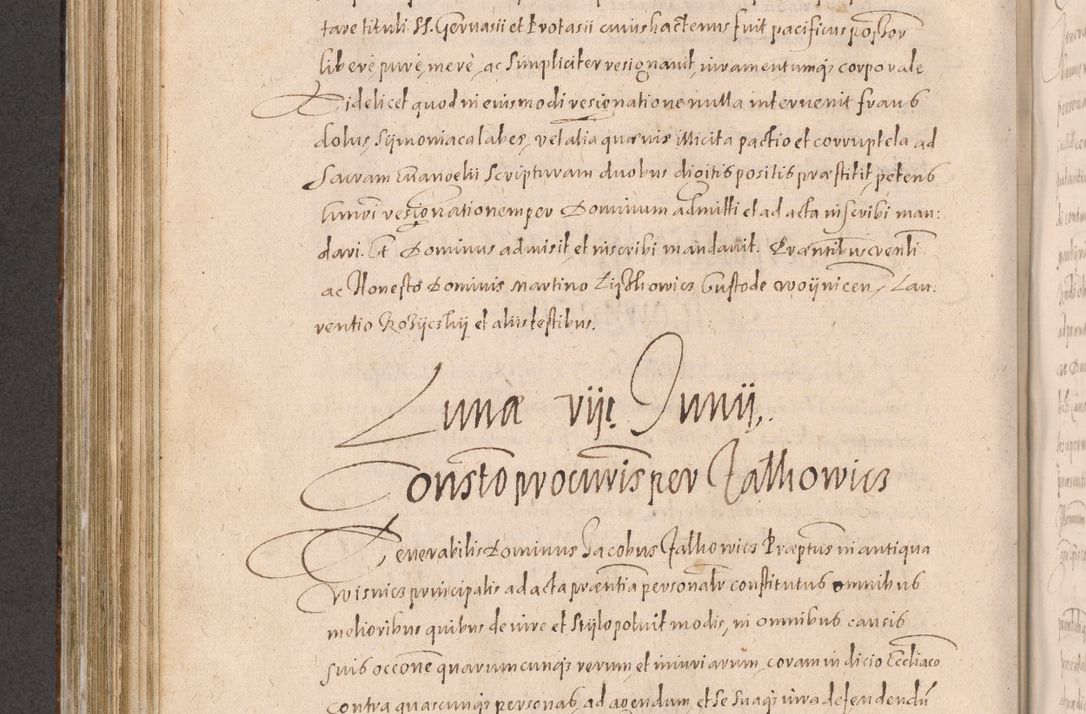 tare tituli SS. Geruasii et Protasii cuius hactenus fuit pacificus possor
libere, pure, mere, ac Simpliciter resignauit, iuramentumq; corporale
Videlicet quod in eiusmodi resignatione nulla interuenit fraus
dolus, Sijmoniaca labes, vel alia quaeuis illicita pactio et corruptela ad
Sacram Euangelii Scripturam duobus digitis positis praestitit, petens
hmoi resignationem per Dominum admitti et ad acta inscribi man:
dari. Et Dominus admisit, et inscribi mandauit. Praentibus
ac Honesto Dominis Martino Custode woijnicen, Lau:
rentio et aliis testibus.
Lunæ vij Junij,
Consto procuris per Jalkowicz
Venerabilis Dominus Jacobus Jalkowicz Præptus in antiqua
wisnicz principalis ad acta præntia personalr constitutus omnibus
melioribus quibus de iure et Stijlo potuit modis, in omnibus causis
suis occone quarumcunq; rerum, et iniuriarum, coram indicio Eccliaco
contra quascunq; personas, ad agendum, et se Suaq; iura defendendū